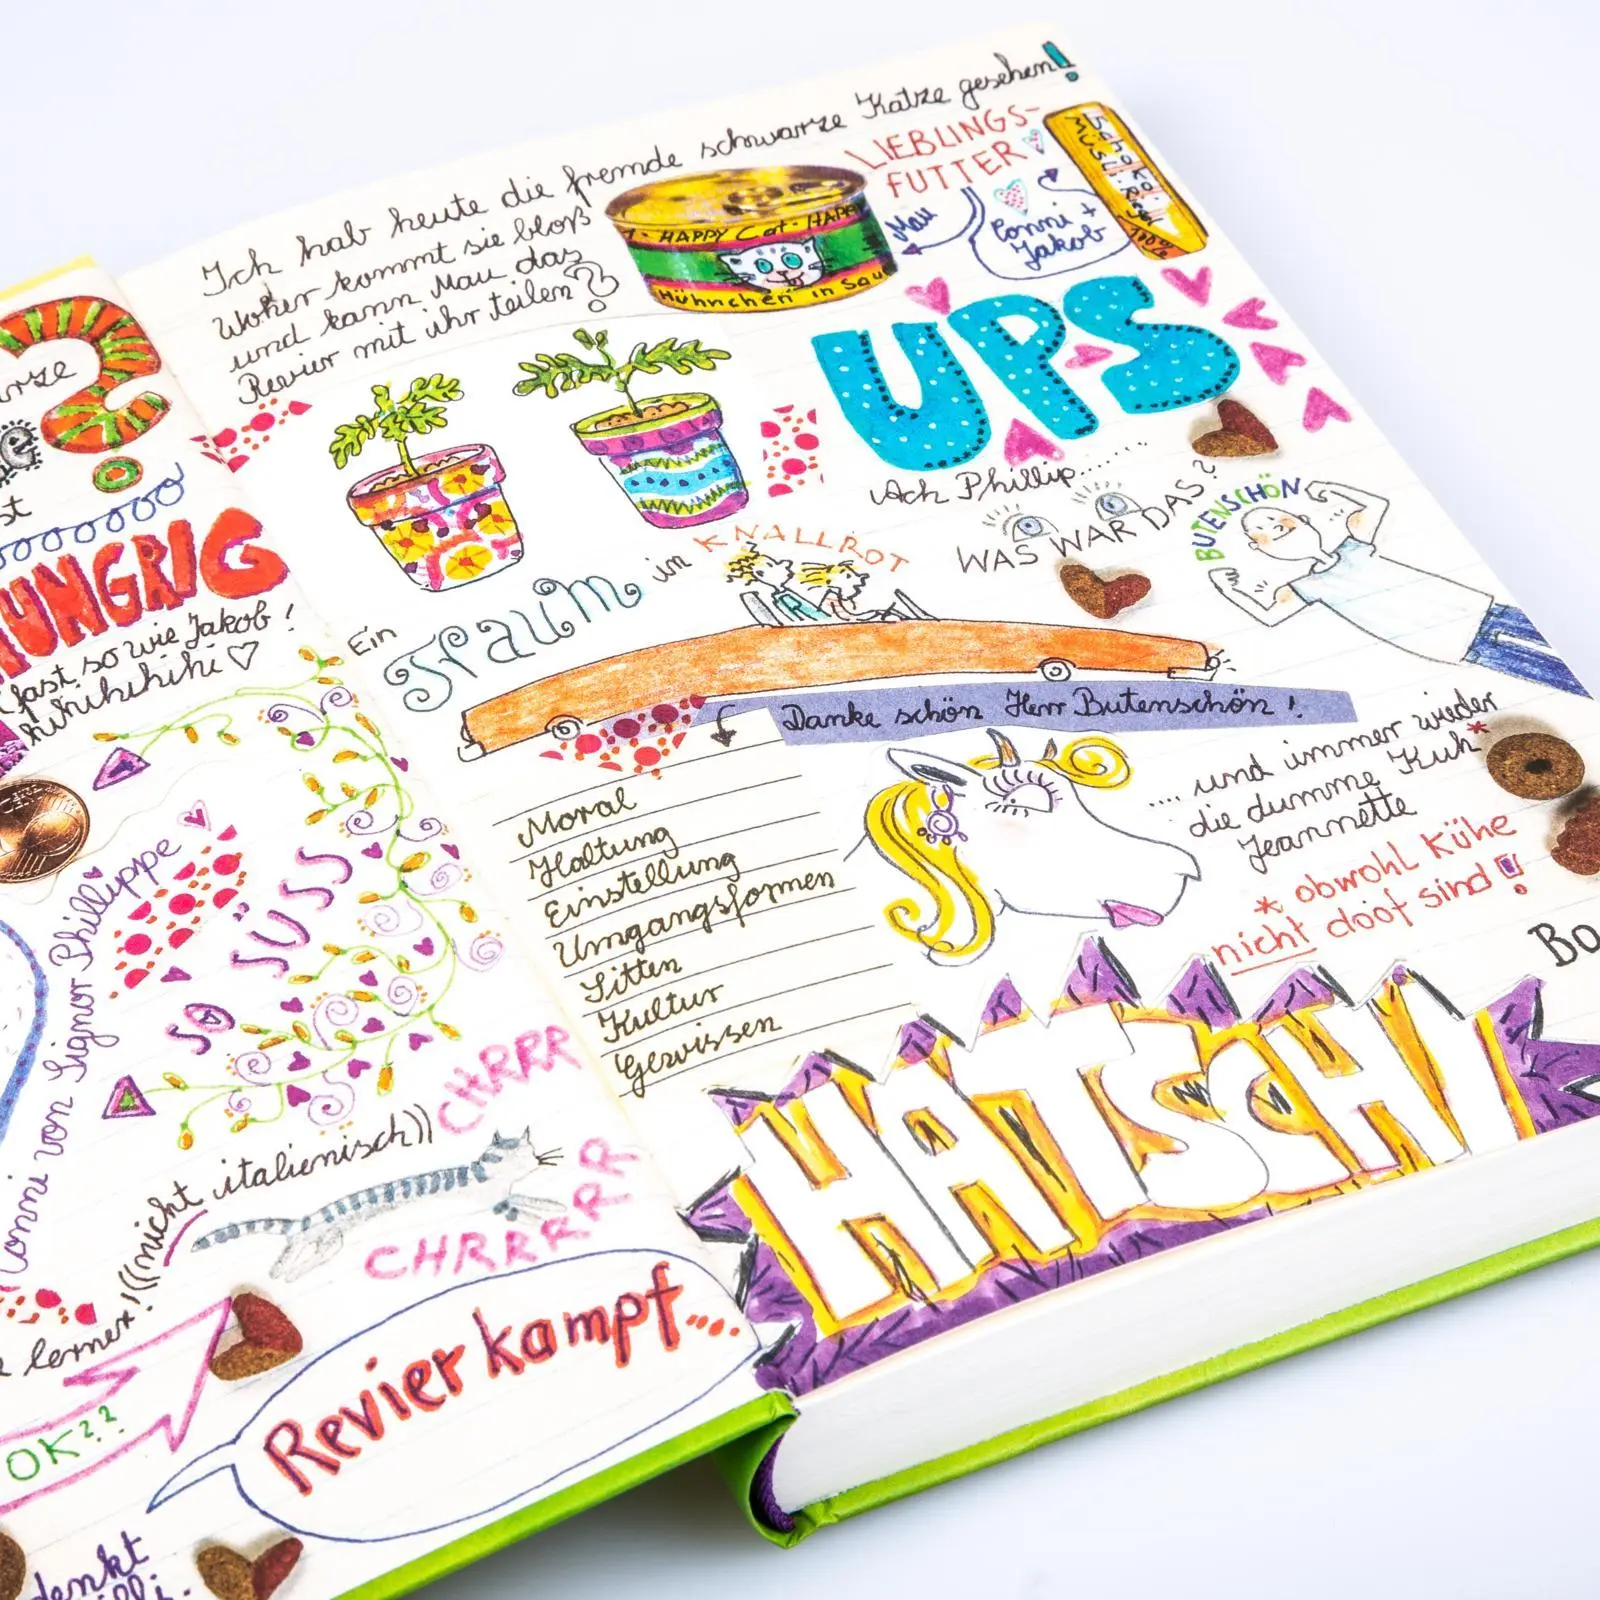 HUNGRIG
fast so wie Jakob!
hihihihihi
SO SÜSS
von Signor Phillippe
((nicht italienisch))
CHRRRR
CHRRRRR
lernen!
OK??
Revierkampf...
denkt
Ich hab heute die fremde schwarze Katze gesehen!
Woher kommt sie bloß
und kann Mau das
Revier mit ihr teilen?
HAPPY Cat · HAPP
Hühnchen in Sau
LIEBLINGS-
FUTTER
Mau
Conni +
Jakob
Schoko
Müsli
100%
UPS
Ach Phillip......
WAS WAR DAS?
BUTENSCHÖN
Ein Traum in KNALLROT
Danke schön Herr Butenschön!
Moral
Haltung
Einstellung
Umgangsformen
Sitten
Kultur
Gewissen
.... und immer wieder
die dumme Kuh*
Jeannette
* obwohl Kühe
nicht doof sind!
Bo
HATSCHI